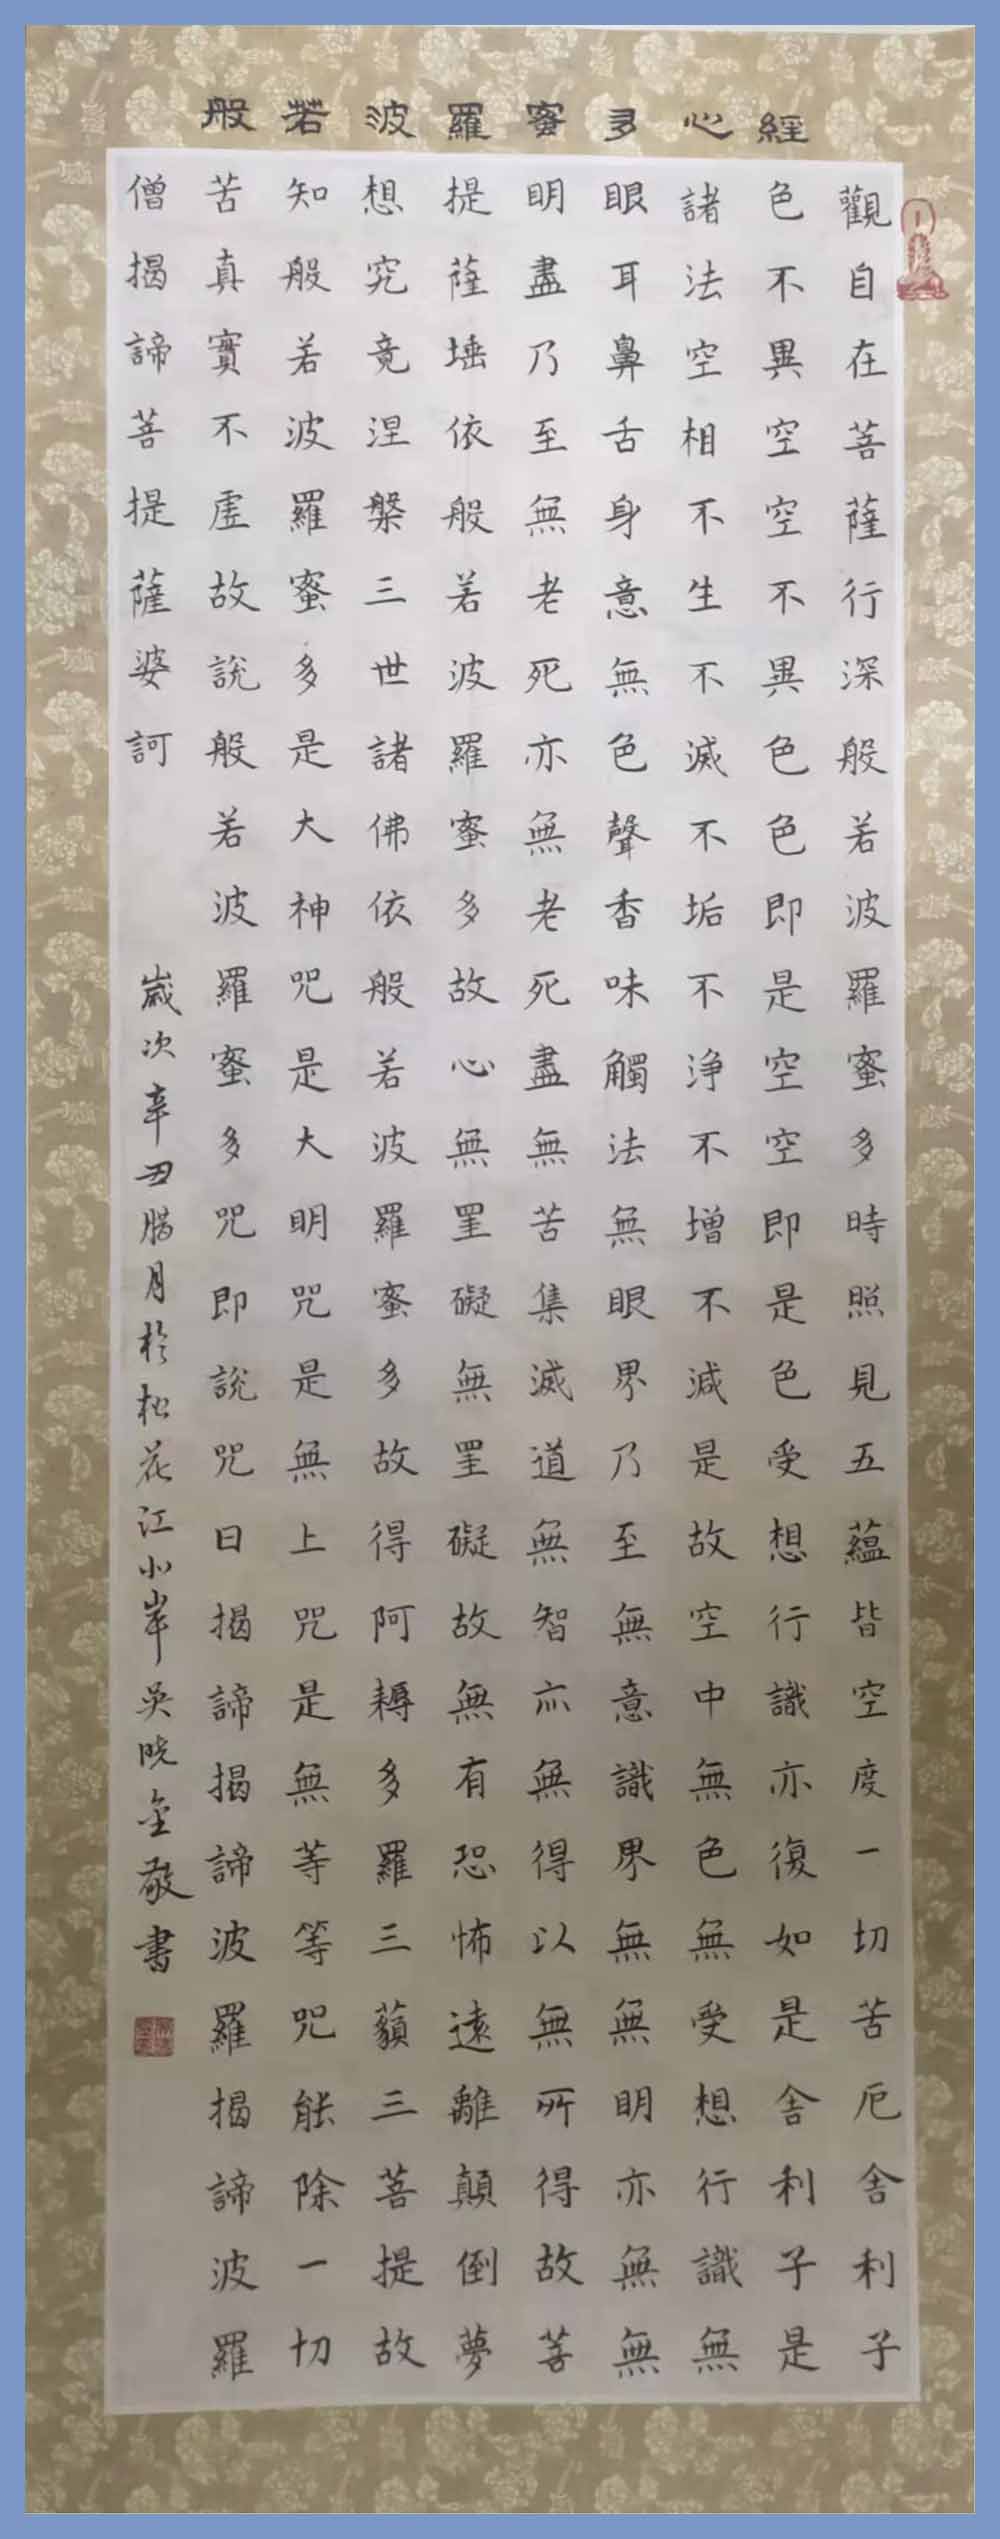 般若波羅蜜多心經
觀自在菩薩行深般若波羅蜜多時照見五蘊皆空度一切苦厄舍利子
色不異空空不異色色即是空空即是色受想行識亦復如是舍利子是
諸法空相不生不滅不垢不淨不增不減是故空中無色無受想行識無
眼耳鼻舌身意無色聲香味觸法無眼界乃至無意識界無無明亦無無
明盡乃至無老死亦無老死盡無苦集滅道無智亦無得以無所得故菩
提薩埵依般若波羅蜜多故心無罣礙無罣礙故無有恐怖遠離顛倒夢
想究竟涅槃三世諸佛依般若波羅蜜多故得阿耨多羅三藐三菩提故
知般若波羅蜜多是大神咒是大明咒是無上咒是無等等咒能除一切
苦真實不虛故說般若波羅蜜多咒即說咒曰揭諦揭諦波羅揭諦波羅
僧揭諦菩提薩婆訶
歲次辛丑腊月於松花江北岸吳晓金敬書